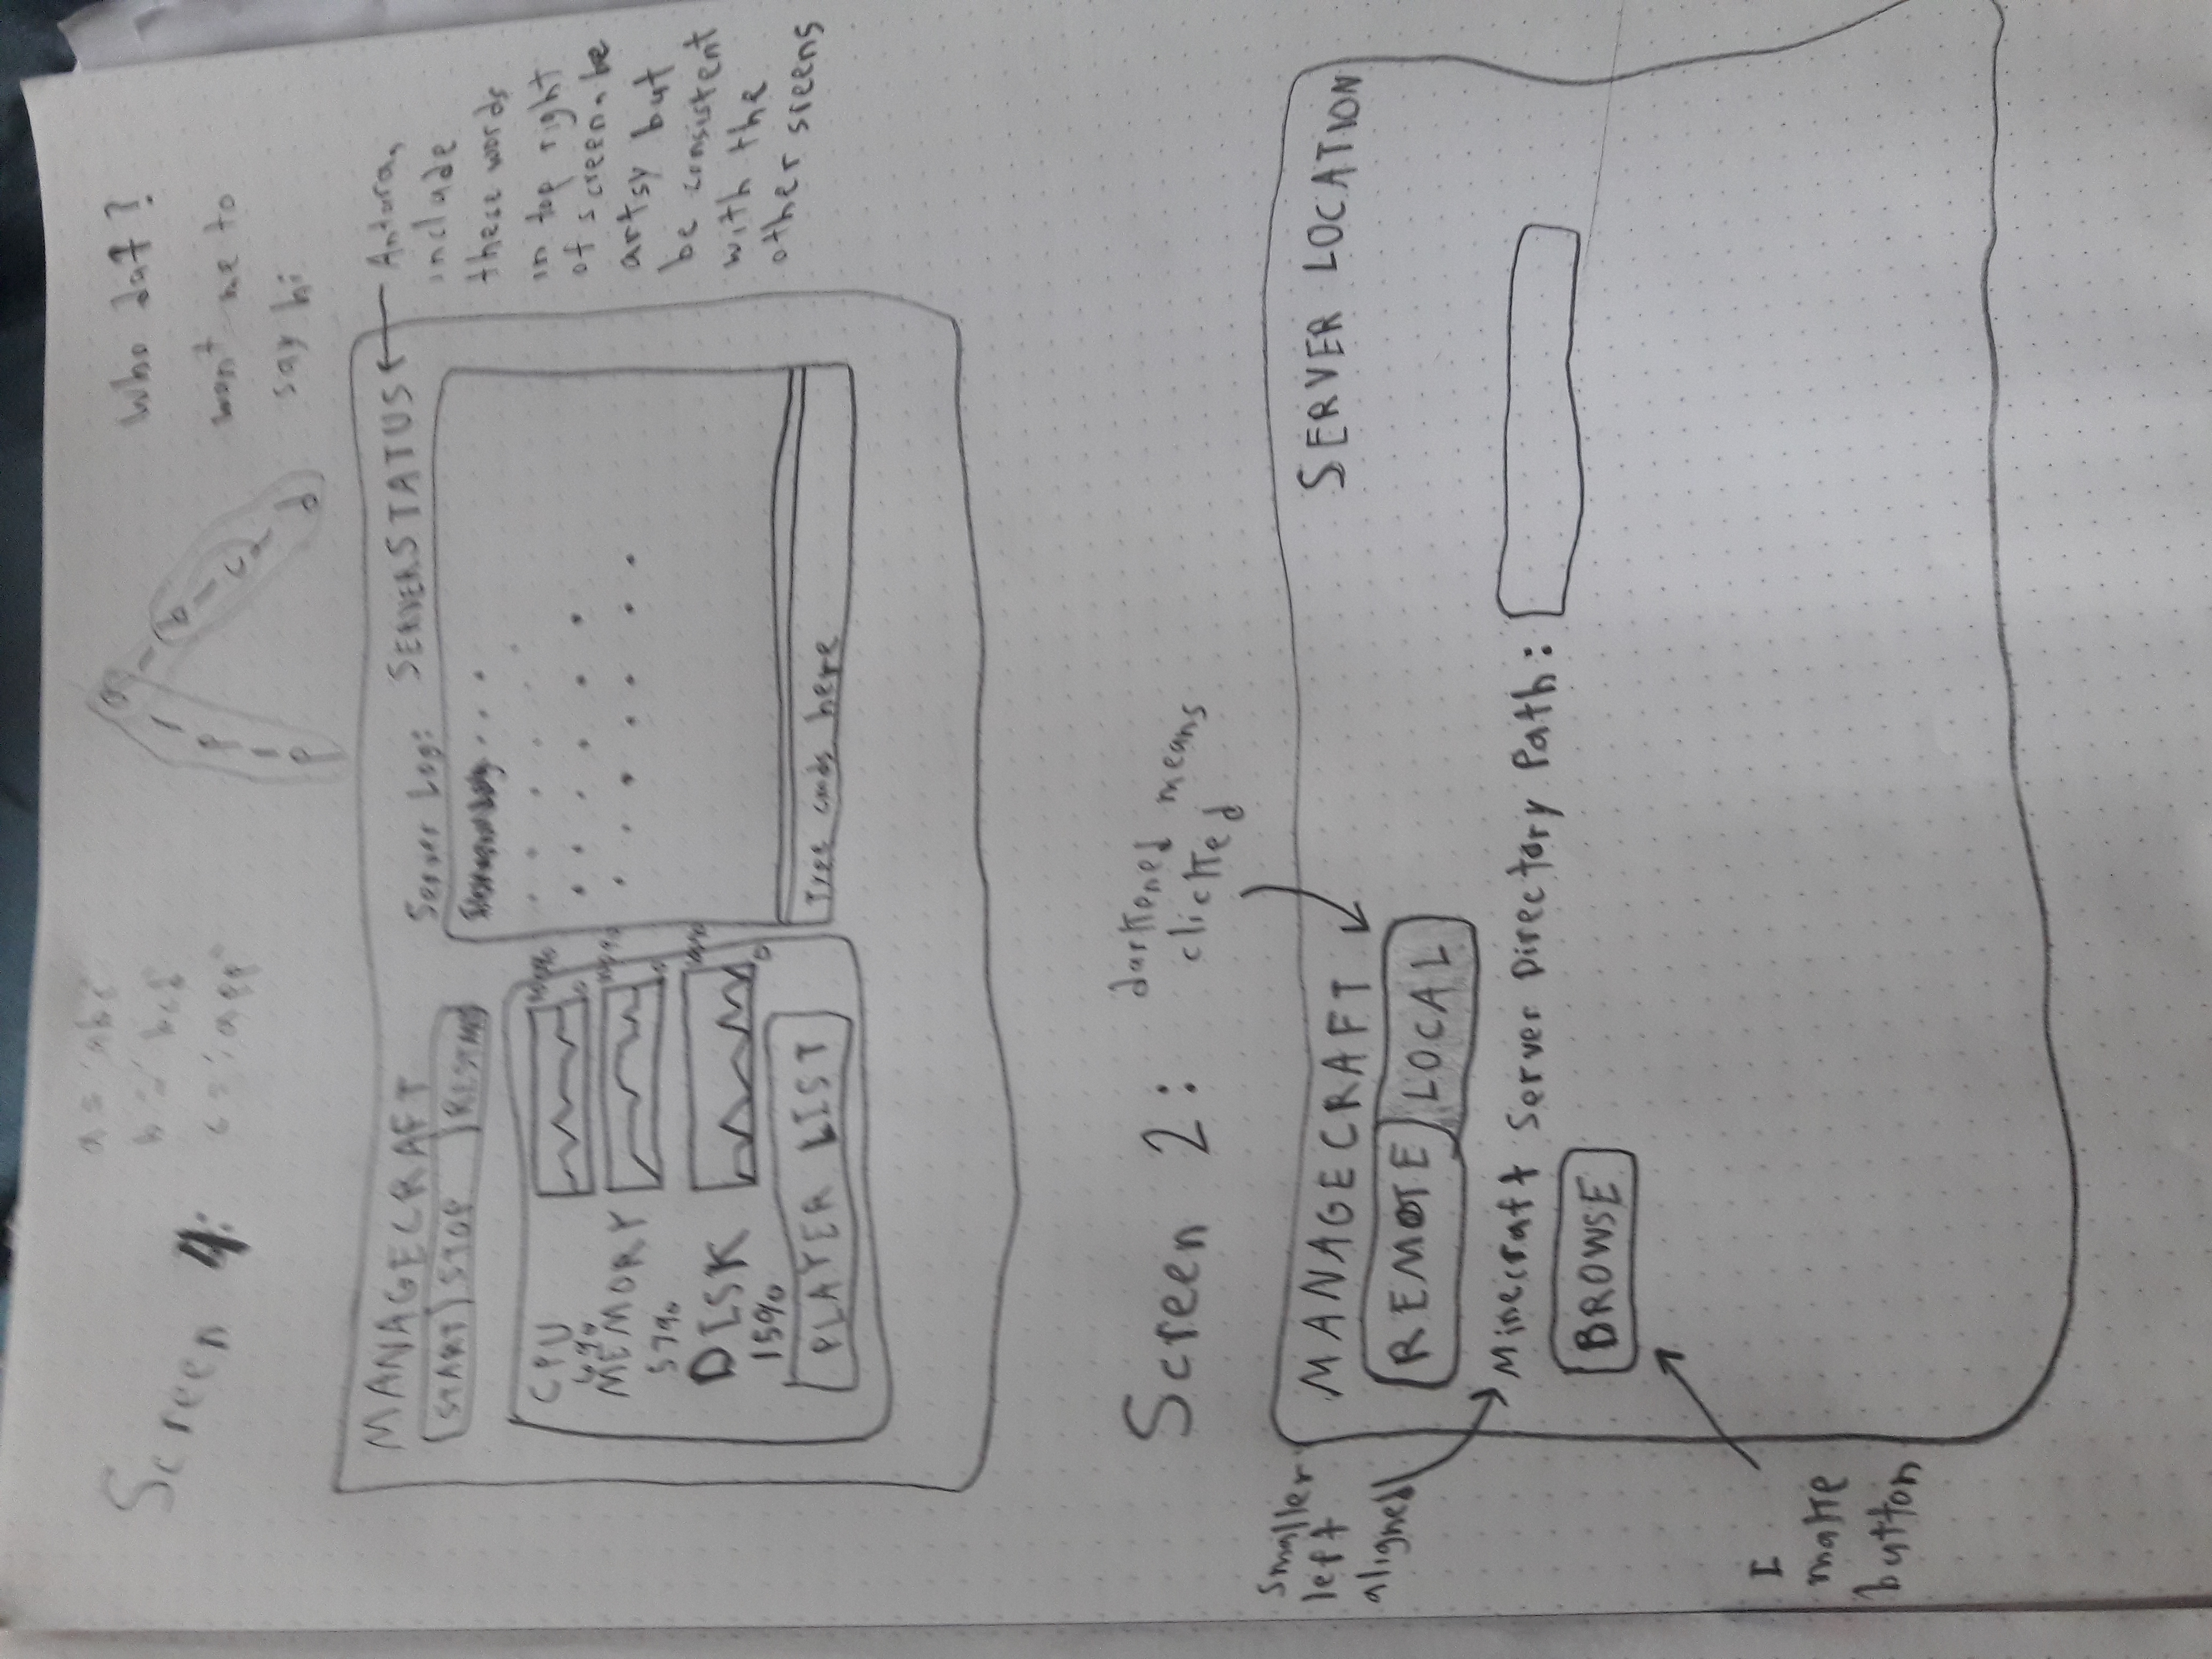 Screen 4:
a = 'abc'
b = 'bcd'
c = 'app'
a
p
p
b
c
d
Who dat?
want me to
say hi
MANAGECRAFT
SERVER STATUS
START STOP RESTART
Server Log:
CPU
MEMORY
57%
DISK
15%
PLAYER LIST
0
0
0
cmds here
Antara,
include
these words
in top right
of screen. be
artsy but
be consistent
with the
other sreens
Screen 2:
darkened means
clicked
smaller
left
aligned
MANAGECRAFT
SERVER LOCATION
REMOTE LOCAL
Minecraft Server Directory Path:
BROWSE
I
make
button